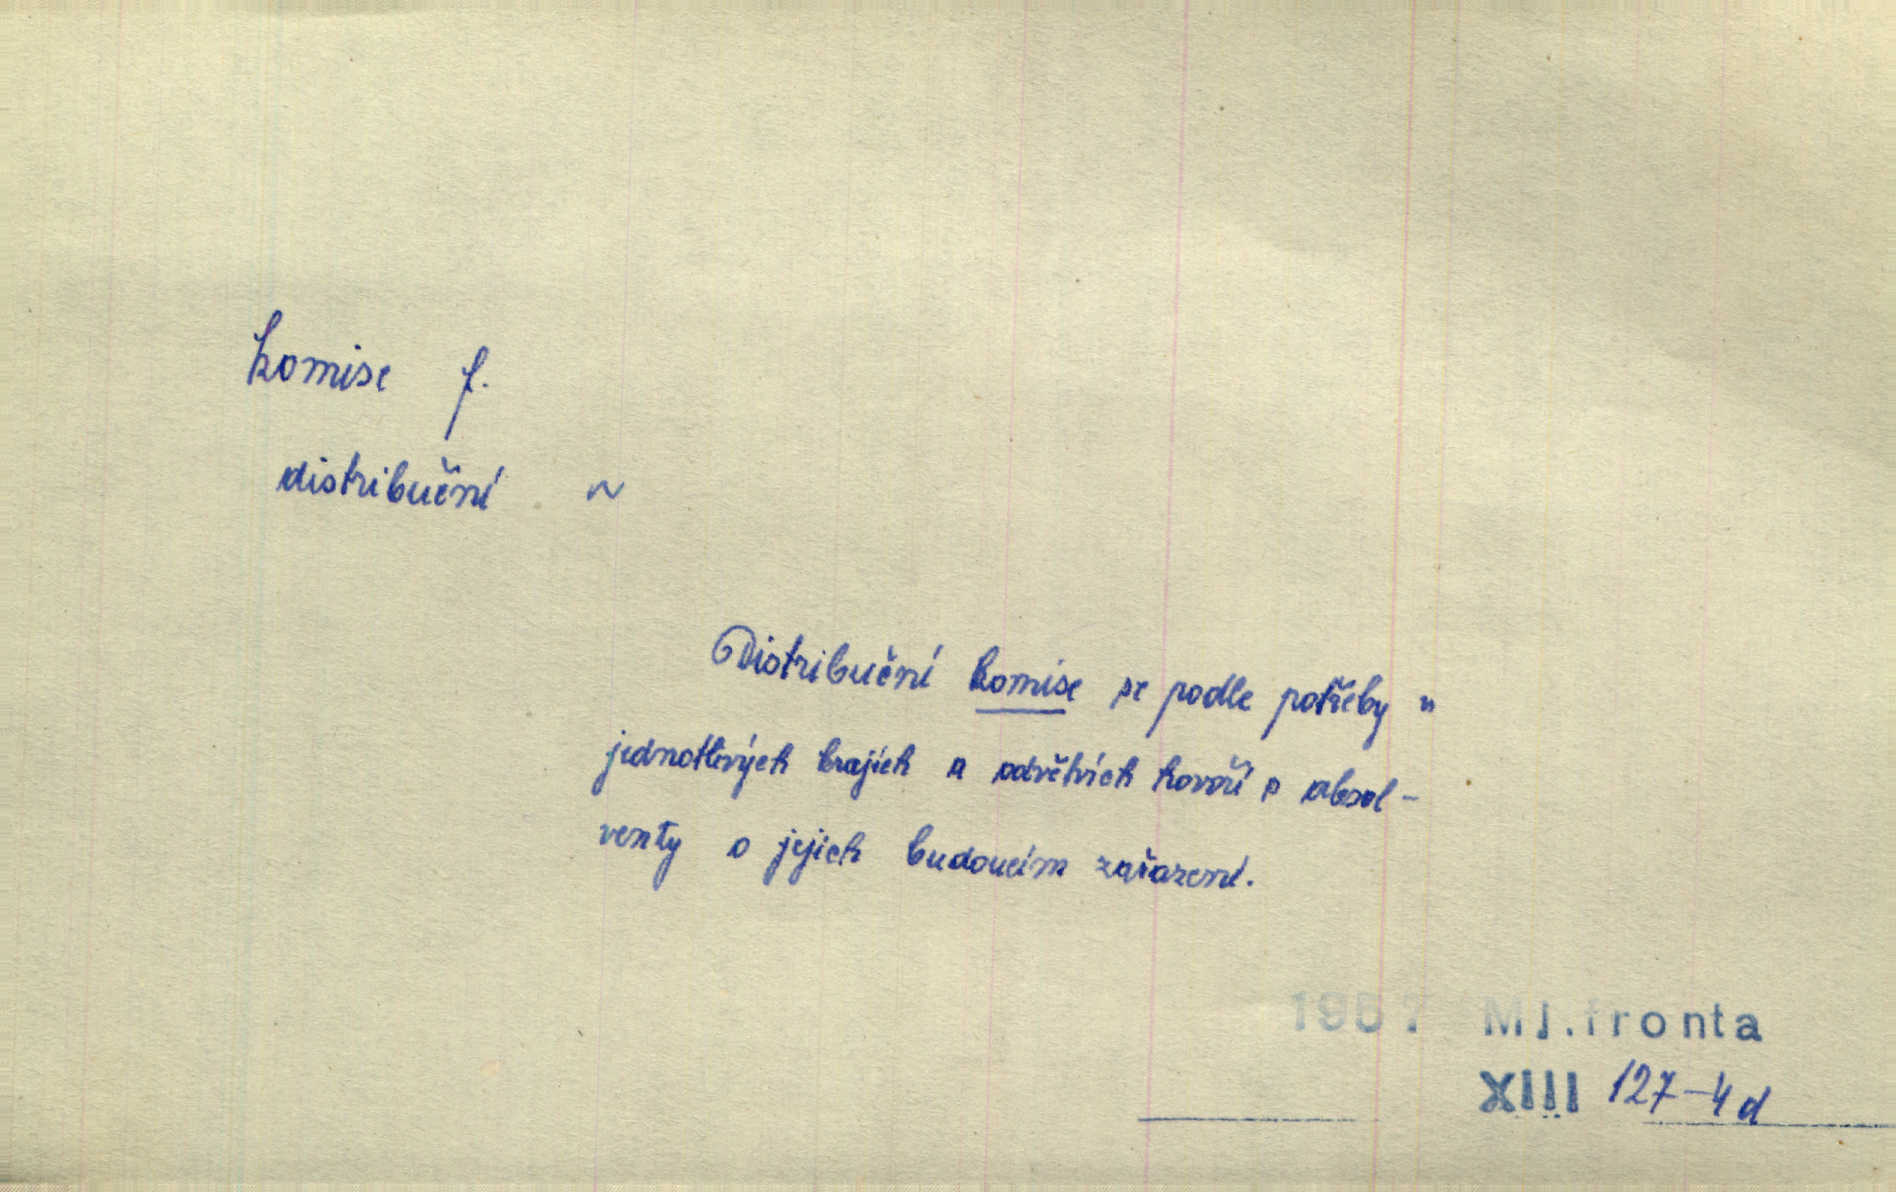 komise f.
distribuční ~
Distribuční komise se podle potřeby v
jednotlivých krajích a odvětvích hovoří s absol-
venty o jejich budoucím zařazení.
1957 Ml.fronta
XIII 127-4d